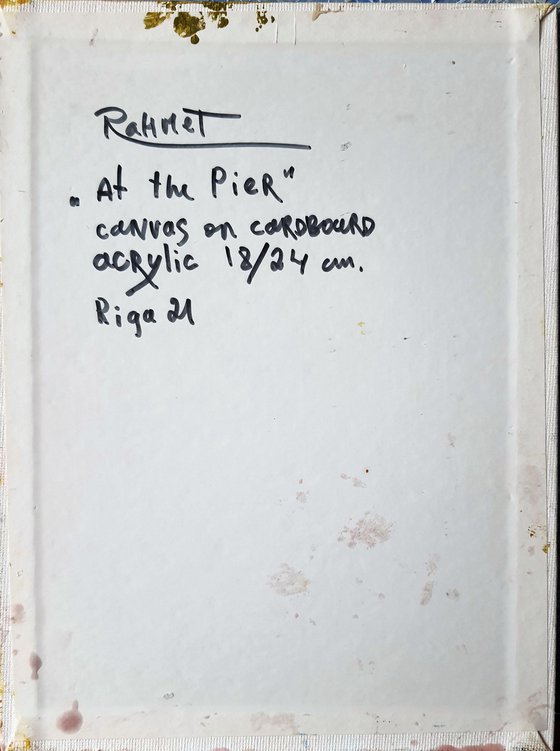 Rahmet
„At the Pier"
canvas on cardboard
acrylic 18/24 cm.
Riga 21